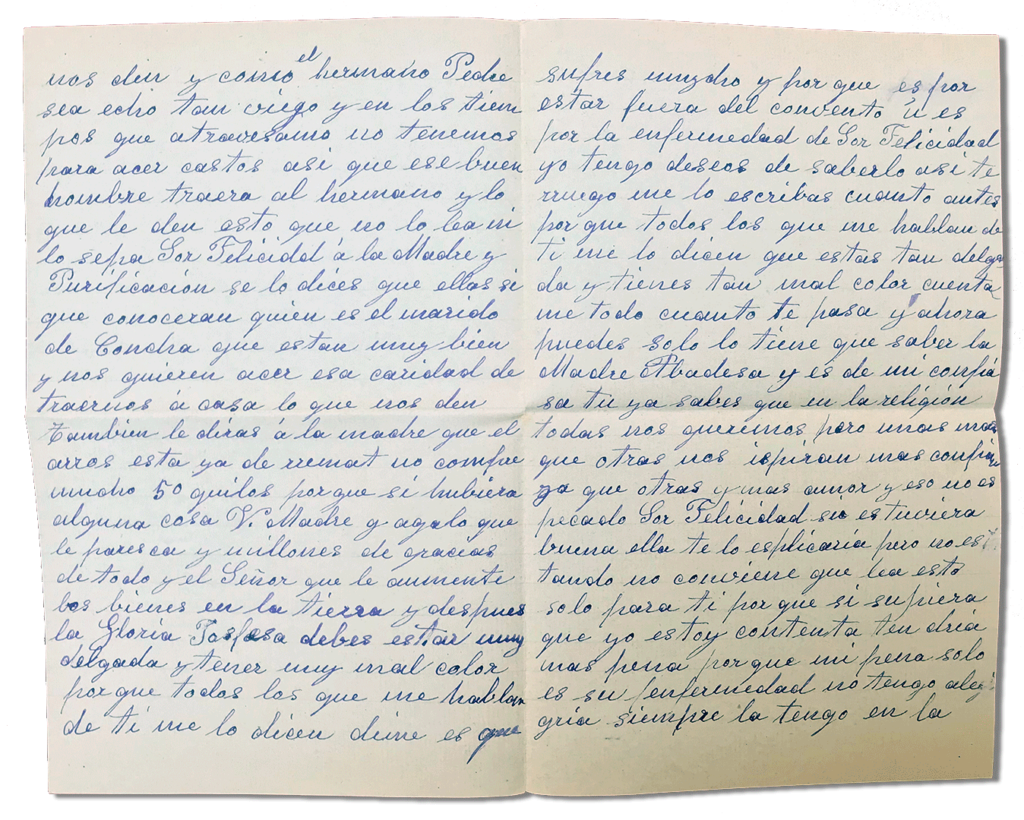 nos den y como el hermano Pedro
sea echo tan viego y en los tiem
pos que atravesamo no tenemos
para acer castos asi que ese buen
hombre traera al hermano y lo
que le den esto que no lo lea ni
lo sepa Sor Felicidd á la Madre y
Purificación se lo dices que ellas si
que conoceran quien es el marido
de Concha que estan muy bien
y nos quieren acer esa caridad de
traernos á casa lo que nos den
tambien le diras á la madre que el
arros esta ya de rremat no compre
mucho 50 quilos porque si hubiera
alguna cosa V. Madre y agalo que
le paresca y millones de gracias
de todo y el Señor que le aumente
los bienes en la tierra y despues
la Gloria debes estar muy
delgada y tener muy mal color
porque todos los que me hablan
de ti me lo dicen dime es que
sufres mucho y por que es por
estar fuera del convento ú es
por la enfermedad de Sor Felicidad
yo tengo deseos de saberlo asi te
rruego me lo escribas cuanto antes
por que todos los que me hablan de
ti me lo dicen que estas tan delga
da y tienes tan mal color cuenta
me todo cuanto te pasa y ahora
puedes solo lo tiene que saber la
Madre Abadesa y es de mi confia
sa tu ya sabes que en la religión
todas nos queremos pero unas mas
que otras nos ispiran mas confian
za que otras y mas amor y eso no es
pecado Sor Felicidad si estuviera
buena ella te lo esplicaria pero no es
tando no conviene que lea esto
solo para ti por que si supiera
que yo estoy contenta ten dria
mas pena por que mi pena solo
es su enfermedad no tengo ale
gria siempre la tengo en la